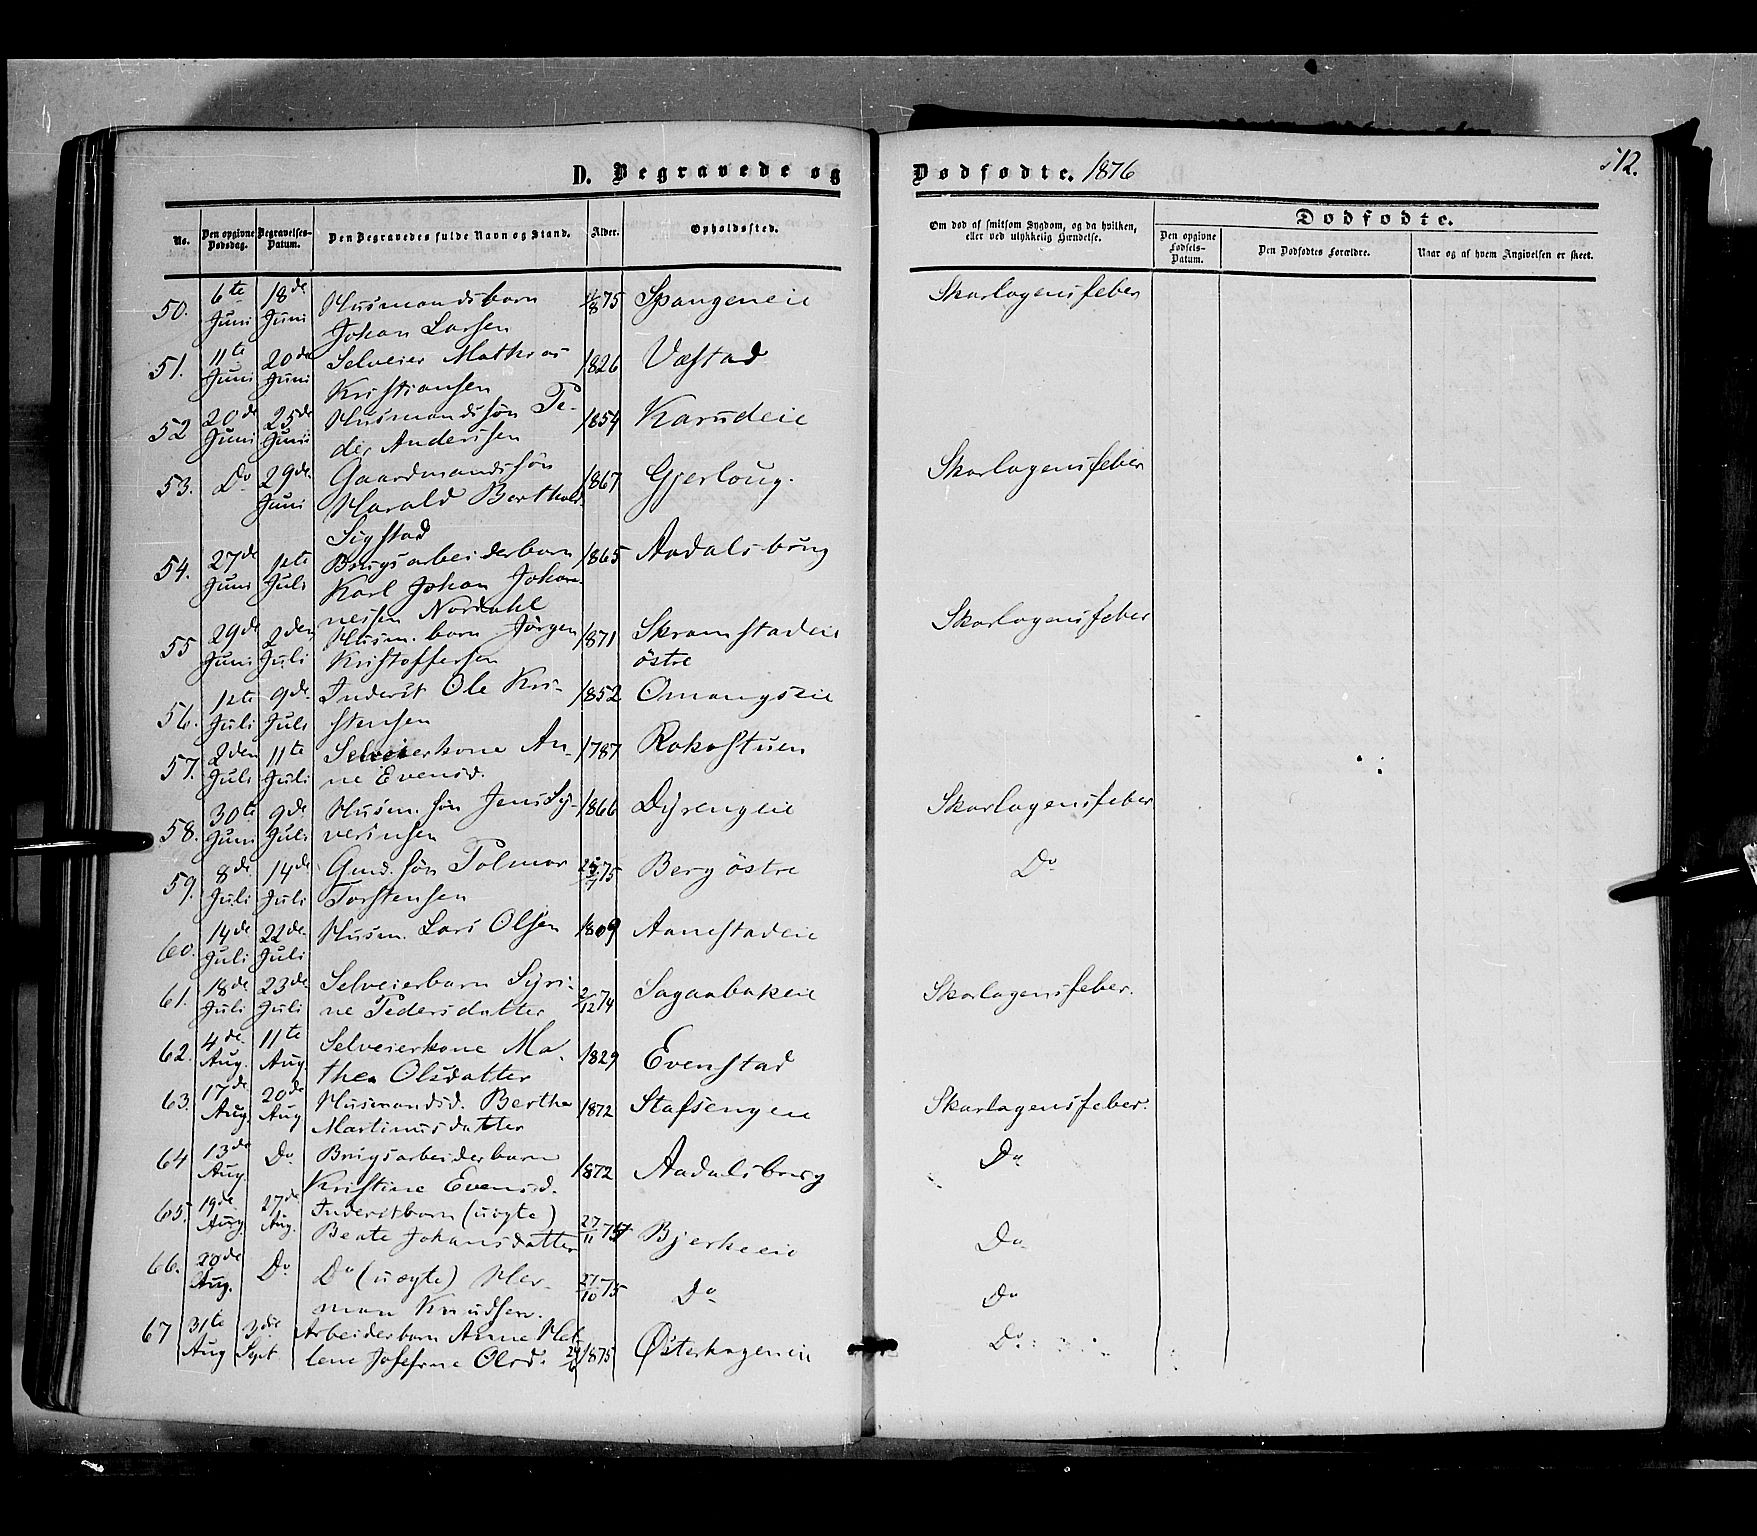 D. Begravede og Dødfødte. 1876
512.
No. Den opgivne Dødsdag. Begravelses-Datum. Den Begravedes fulde Navn og Stand. Alder. Opholdssted.
Om død af smitsom Sygdom, og da hvilken, eller ved ulykkelig Hændelse.
Dødfødte.
Den opgivne Fødsels-Datum. Den Dødfødtes Forældre. Naar og af hvem Angivelsen er skeet.
50. 6te Juni 18de Juni Husmandsbarn /8 75 Spangeneie Skarlagensfeber
Johan Larsen
51. 11te Juni 20de Juni Selveier Mathias 1826 Væstad
Kristiansen
52 20de Juni 25de Juni Husmandssøn Pe- 1854 Karudeie
der Anderssen
53. Do 29de Juni Gaardmandssøn 1867 Gjerloug. Skarlagensfeber
Harald Berthold
Sigstad
54. 27de Juni 1ste Juli Brugsarbeiderbarn 1865 Aadalsbrug
Karl Johan Johan-
nessen Nordahl
55 29de Juni 2den Juli Husm. barn Jørgen 1871 Skramstadeie Skarlagensfeber
Kristoffersen østre
56. 1ste Juli 9de Juli Inderst Ole Kri- 1852 Omangseie
stensen
57. 2den Juli 11te Juli Selveierkone An- 1787 Rokostuen
ne Evensd.
58. 30te Juni 9de Juli Husm. søn Jens Sy- 1866 Dyrengeie Skarlagensfeber
verinsen
59. 8de Juli 14de Juli Gmd. søn Polmar 75 Berg østre Do
Torstensen
60. 14de Juli 22de Juli Husm. Lars Olsen 1809 Aanestadeie
61. 18de Juli 23de Juli Selveierbarn Syri- 2/12 74 Sagaabakeie Skarlagensfeber.
ne Pedersdatter
62. 4de Aug. 11te Aug. Selveierkone Ma- 1829 Evenstad
thea Olsdatter
63. 17de Aug. 20de Aug Husmandsd. Berthe 1872 Stafsengeie Skarlagensfeber.
Martinusdatter
64 13de Aug. Do Brugsarbeiderbarn 1872 Aadalsbrug Do
Kristine Evensd.
65. 19de Aug. 27de Aug. Inderstbarn (uægte) 27/11 Bjerkeeie Do
Beate Johansdatter
66. 20de Aug. Do Do (uægte) Her- 27/10 75 Do Do
man Knudsen.
67 31te Aug 3die Sept Arbeiderbarn Anne Hel- 1875 Østerhageneie Do
lene Josefine Olsd.